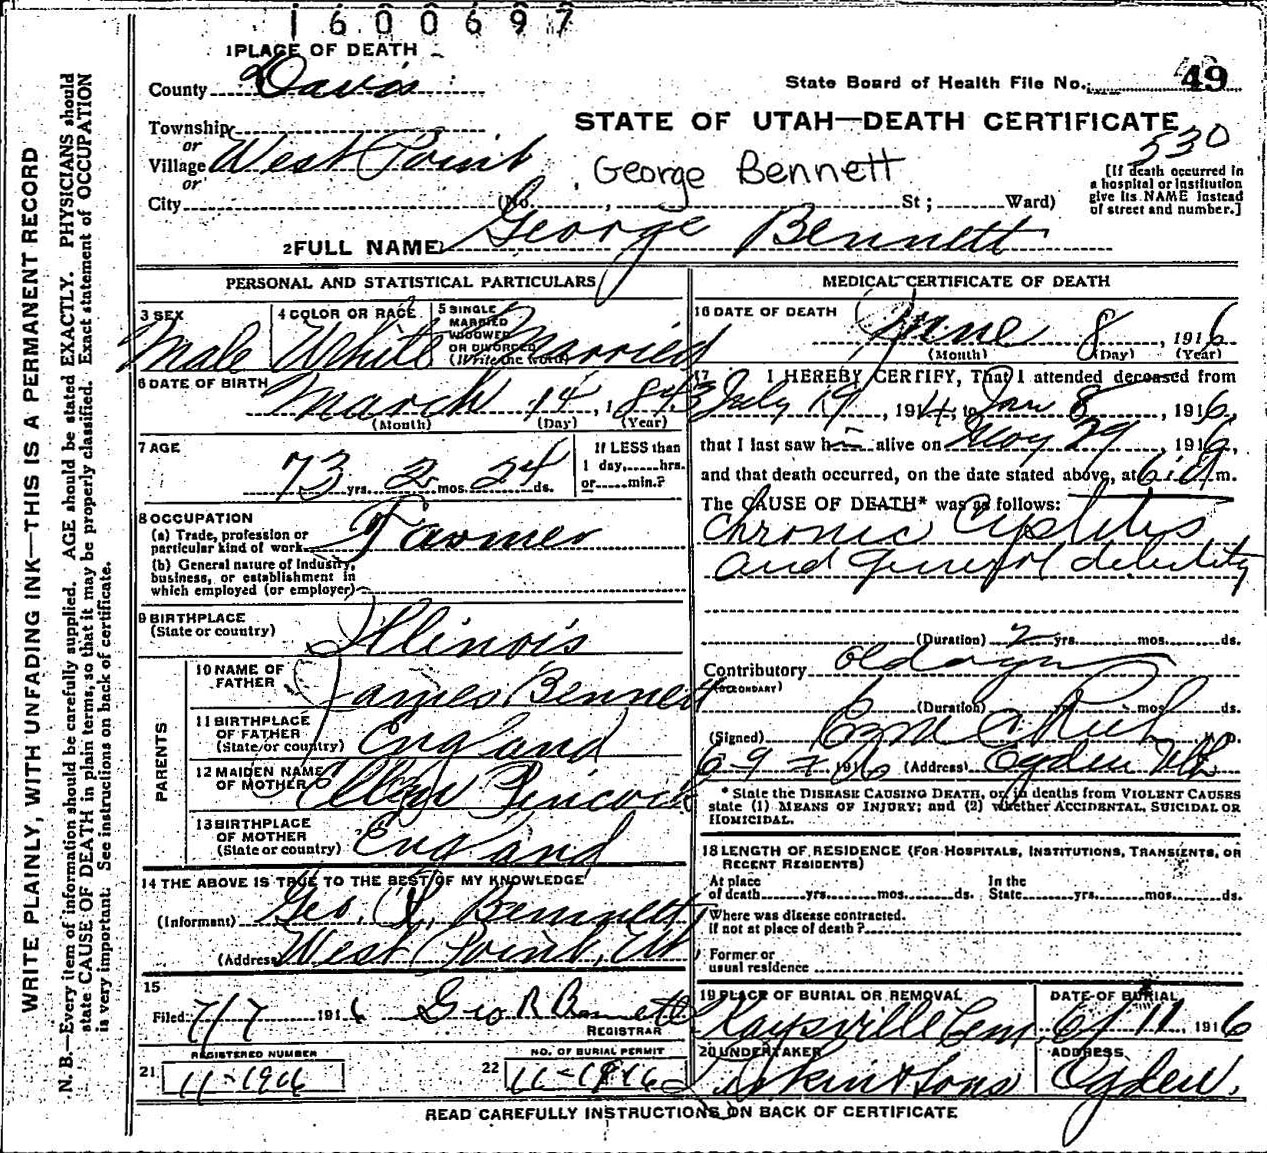 1600697
1 PLACE OF DEATH
County Davis
State Board of Health File No. 49
Township
or
Village West Point
or
City
STATE OF UTAH—DEATH CERTIFICATE
530
George Bennett
(No. St; Ward)
[If death occurred in
a hospital or institution
give its NAME instead
of street and number.]
2 FULL NAME George Bennett
PERSONAL AND STATISTICAL PARTICULARS
3 SEX
Male
4 COLOR OR RACE
White
5 SINGLE
MARRIED
WIDOWED
OR DIVORCED
(Write the word)
Married
6 DATE OF BIRTH
March 14, 1843
(Month) (Day) (Year)
7 AGE
73 yrs. 2 mos. 24 ds.
If LESS than
1 day, hrs.
or min.?
8 OCCUPATION
(a) Trade, profession or
particular kind of work Farmer
(b) General nature of Industry,
business, or establishment in
which employed (or employer)
9 BIRTHPLACE
(State or country) Illinois
PARENTS
10 NAME OF
FATHER James Bennett
11 BIRTHPLACE
OF FATHER
(State or country) England
12 MAIDEN NAME
OF MOTHER Ellen
13 BIRTHPLACE
OF MOTHER
(State or country) England
14 THE ABOVE IS TRUE TO THE BEST OF MY KNOWLEDGE
(Informant) Geo. Bennett
(Address West Point, Ut
15
Filed 7/7 1916 Geo R Bennett
REGISTRAR
REGISTERED NUMBER
21 11-1906
NO. OF BURIAL PERMIT
22
MEDICAL CERTIFICATE OF DEATH
16 DATE OF DEATH
June 8, 1916
(Month) (Day) (Year)
17 I HEREBY CERTIFY, That I attended deceased from
July 19, 1914, to Jun 8, 1916,
that I last saw him alive on May 29, 1916,
and that death occurred, on the date stated above, at 6 m.
The CAUSE OF DEATH* was as follows:
Chronic Cystitis
and general debility
(Duration) 2 yrs. mos. ds.
Contributory Old age
(SECONDARY)
(Duration) yrs. mos. ds.
(Signed) M.D.
6-9 1916 (Address) Ogden Utah
* State the DISEASE CAUSING DEATH, or, in deaths from VIOLENT CAUSES
state (1) MEANS OF INJURY; and (2) whether ACCIDENTAL, SUICIDAL OR
HOMICIDAL.
18 LENGTH OF RESIDENCE (FOR HOSPITALS, INSTITUTIONS, TRANSIENTS, OR
RECENT RESIDENTS)
At place
of death yrs. mos. ds.
In the
State yrs. mos. ds.
Where was disease contracted.
if not at place of death?
Former or
usual residence
19 PLACE OF BURIAL OR REMOVAL
Kaysville Cem.
DATE OF BURIAL
6/11, 1916
20 UNDERTAKER
& Sons
ADDRESS
Ogden.
READ CAREFULLY INSTRUCTIONS ON BACK OF CERTIFICATE
WRITE PLAINLY, WITH UNFADING INK—THIS IS A PERMANENT RECORD
N. B.—Every item of information should be carefully supplied. AGE should be stated EXACTLY. PHYSICIANS should
state CAUSE OF DEATH in plain terms, so that it may be properly classified. Exact statement of OCCUPATION
is very important. See instructions on back of certificate.